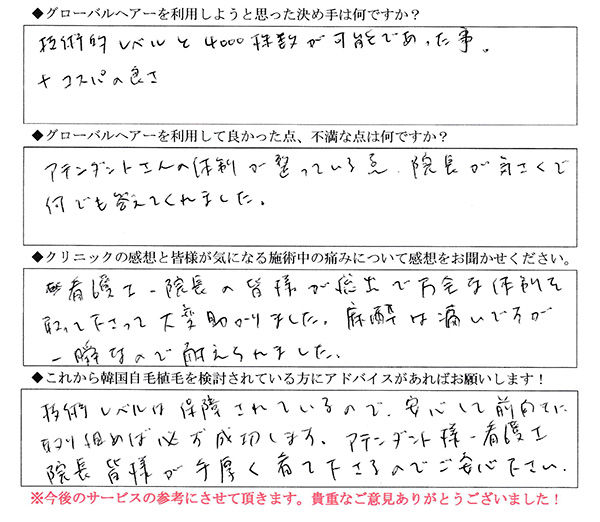 ◆グローバルヘアーを利用しようと思った決め手は何ですか？
技術的レベルと4000株数が可能であった事。
+コスパの良さ
◆グローバルヘアーを利用して良かった点、不満な点は何ですか？
アテンダントさんの体制が整っている点、院長が気さくで
何でも答えてくれました。
◆クリニックの感想と皆様が気になる施術中の痛みについて感想をお聞かせください。
看護士-院長の皆様が総出で万全な体制を
取って下さって大変助かりました。麻酔は痛いですが
一瞬なので耐えられました。
◆これから韓国自毛植毛を検討されている方にアドバイスがあればお願いします！
技術レベルは保障されているので、安心して前向きに
取り組めば必ず成功します、アテンダント様-看護士
院長皆様が手厚く看て下さるのでご安心下さい.
※今後のサービスの参考にさせて頂きます。貴重なご意見ありがとうございました！